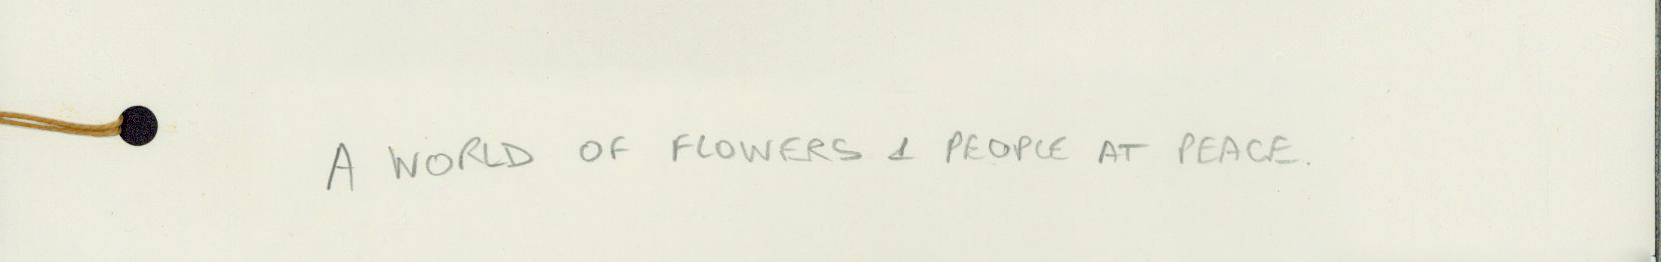 A WORLD OF FLOWERS & PEOPLE AT PEACE.